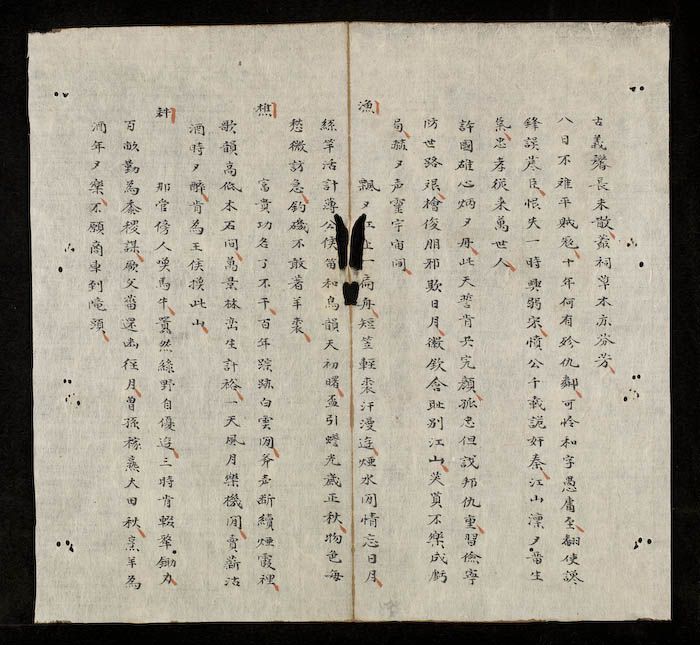 古義馨長未散蓊祠草本亦芬芳
八日不難平賊寇十年何有殄仇鄰可怜和字愚庸主翻使讒
鋒誤藎臣恨失一時興弱宋憤公千載詭奸秦江山凜々畱生
氣忠孝從來萬世人
許國雄心炳々丹此天誓肯共完顏孤忠但說邦仇重習儉寧
防世路艰檜俊朋邪欺日月徽欽含耻别江山英莫不樂成虧
局赫々声灵宇宙间
漁
飄々江上一扁舟短笠輕裘汗漫遊煙水闲情忘日月
絲竿活計薄公侯笛和鳥韻天初曙盃引蟾光歲正秋物色每
愁微訪急釣磯不敢著羊裘
樵
富貴功名了不干百年踪跡白雲间斧声断續煙霞裡
歌韻高低木石间萬景林峦生計裕一天風月樂機闲賣薪沽
酒時々醉肯為王侯換此山
耕
那管傍人嘆馬牛嚣然綠野自優遊三時肯輟犂鋤力
百畝勤為黍稷謀厥父菑還幽徑月曾孫稼熹大田秋烹羊為
酒年々樂不願商車到隴頭